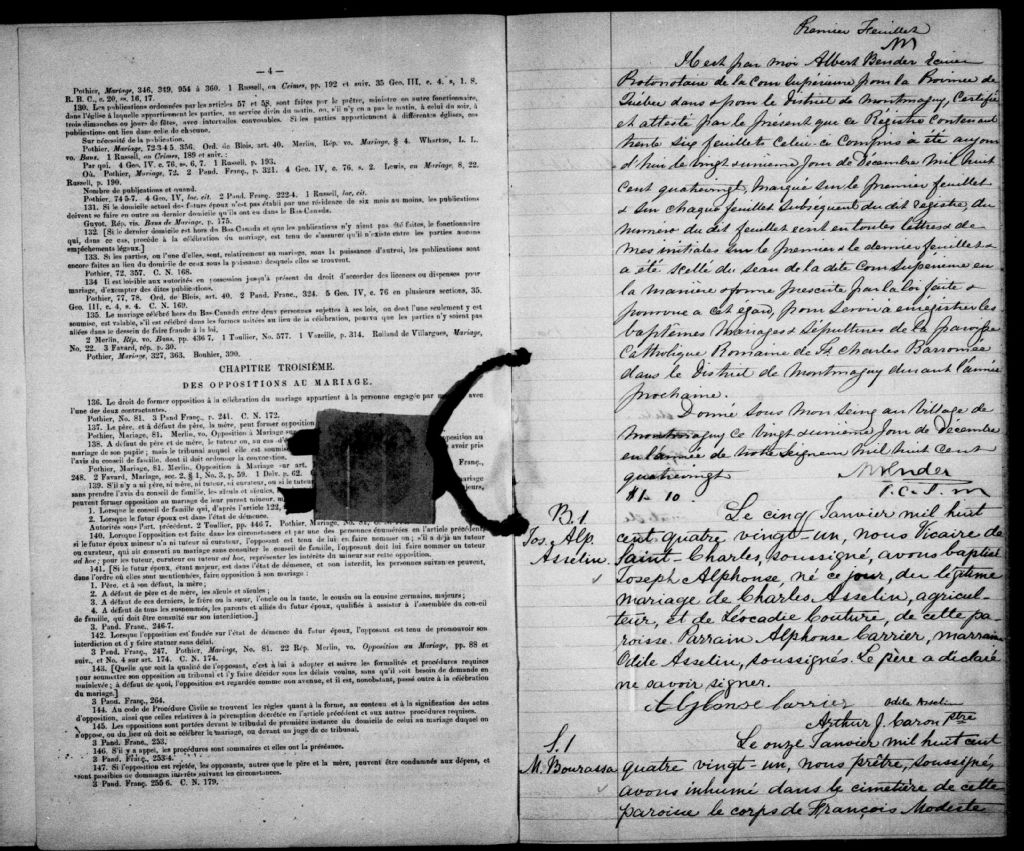 — 4 —
Pothier, Mariage, 346, 349, 954 à 360. 1 Russell, on Crimes, pp. 192 et suiv. 35 Geo. III, c. 4, s, 1. S.
R. B. C., c. 20, ss. 16, 17.
130. Les publications ordonnées par les articles 57 et 58, sont faites par le prêtre, ministre ou autre fonctionnaire,
dans l'église à laquelle appartiennent les parties, au service divin du matin, ou, s'il n'y en a pas le matin, à celui du soir, à
trois dimanches ou jours de fêtes, avec intervalles convenables. Si les parties appartiennent à différentes églises, ces
publications ont lieu dans celle de chacune.
Sur nécessité de la publication.
Pothier, Mariage, 72-3 4 5, 356. Ord. de Blois, art. 40. Merlin, Rép. vo. Mariage, § 4. Wharton, L. L.
vo. Bans. 1 Russall, on Crimes, 189 et suiv. :
Par qui. 4 Geo. IV, c. 76, ss. 6, 7. 1 Russell, p. 193.
Où. Pothier, Mariage, 72. 2 Pand. Franç., p. 321. 4 Geo. IV, c. 76, s. 2. Lewis, on Mariage, 8, 22.
Russell, p. 190.
Nombre de publications et quand.
Pothier, 74 5-7. 4 Geo. IV, loc. cit. 2 Pand. Franç. 222-4. 1 Russell, loc. cit.
131. Si le domicile actuel des futurs époux n'est pas établi par une résidence de six mois au moins, les publications
doivent se faire en outre au dernier domicile qu'ils ont eu dans le Bas-Canada.
Guyot, Rép. vis. Bans de Mariage, p. 175.
132. [Si le dernier domicile est hors du Bas-Canada et que les publications n'y aient pas été faites, le fonctionnaire
qui, dans ce cas, procède à la célébration du mariage, est tenu de s'assurer qu'il n'existe entre les parties aucuns
empêchements légaux.]
133. Si les parties, ou l'une d'elles, sont, relativement au mariage, sous la puissance d'autrui, les publications sont
encore faites au lieu du domicile de ceux sous la puissance desquels elles se trouvent.
Pothier, 72, 357. C. N. 168.
134 Il est loisible aux autorités en possession jusqu'à présent du droit d'accorder des licences ou dispenses pour
mariage, d'exempter des dites publications.
Pothier, 77, 78. Ord. de Blois, art. 40. 2 Pand. Franç., 324. 5 Geo. IV, c. 76 en plusieurs sections, 35.
Geo. III, c. 4, s. 4. C. N. 169.
135. Le mariage célébré hors du Bas-Canada entre deux personnes sujettes à ses lois, ou dont l'une seulement y est
soumise, est valable, s'il est célébré dans les formes usitées au lieu de la célébration, pourvu que les parties n'y soient pas
allées dans le dessein de faire fraude à la loi.
2 Merlin, Rép. vo. Bans, pp. 436 7. 1 Toullier, No. 577. 1 Vazeille, p. 314. Rolland de Villargues, Mariage,
No. 22. 3 Favard, rép. p. 30.
Pothier, Mariage, 327, 363. Bouhier, 390.
CHAPITRE TROISIÈME.
DES OPPOSITIONS AU MARIAGE.
136. Le droit de former opposition à la célébration du mariage appartient à la personne engagée par avec
l'une des deux contractantes.
Pothier, No. 81. 3 Pand Franç., p. 241. C. N. 172.
137. Le père, et à défaut du père, la mère, peut former opposition
Pothier, Mariage, 81. Merlin, vo. Opposition à Mariage sur
138. A défaut de père et de mère, le tuteur ou, au cas d' opposition au
mariage de son pupille ; mais le tribunal auquel elle est soumise avoir pris
l'avis du conseil de famille, dont il doit ordonner la convocation.
Pothier, Mariage, 81. Merlin, Opposition à Mariage sur art. Franç.,
248. 2 Favard, Mariage, sec. 2, § 1, No. 3, p. 59. 1 Delv. p. 62.
139. S'il n'y a ni père, ni mère, ni tuteur, ni curateur, ou si le
sans prendre l'avis du conseil de famille, les aïeuls et aïeules, majeurs,
peuvent former opposition au mariage de leur parent mineur,
1. Lorsque le conseil de famille qui, d'après l'article 122,
2. Lorsque le futur époux est dans l'état de démence.
Autorités sous Part. précédent. 2 Toullier, pp. 446 7. Pothier, Mariage, No. 81,
140. Lorsque l'opposition est faite dans les circonstances et par une des personnes énumérées en l'article précédent,
si le futur époux mineur n'a ni tuteur ni curateur, l'opposant est tenu de lui en faire nommer un ; s'il a déjà un tuteur
ou curateur, qui ait consenti au mariage sans consulter le conseil de famille, l'opposant doit lui faire nommer un tuteur
ad hoc ; pour les tuteur, curateur ou tuteur ad hoc, représenter les intérêts du mineur sur cette opposition.
141. [Si le futur époux, étant majeur, est dans l'état de démence, et non interdit, les personnes suivantes peuvent,
dans l'ordre où elles sont mentionnées, faire opposition à son mariage :
1. Père, et à son défaut, la mère ;
2. A défaut de père et de mère, les aïeuls et aïeules ;
3. A défaut de ces derniers, le frère ou la sœur, l'oncle ou la tante, le cousin ou la cousine germains, majeurs ;
4. A défaut de tous les susnommés, les parents et alliés du futur époux, qualifiés à assister à l'assemblée du conseil
de famille, qui doit être consulté sur son interdiction.]
3 Pand. Franç., 246-7.
142. Lorsque l'opposition est fondée sur l'état de démence du futur époux, l'opposant est tenu de promouvoir son
interdiction et d'y faire statuer sans délai.
3 Pand. Franç., 247. Pothier, Mariage, No. 81. 22 Rép. Merlin, vo. Opposition au Mariage, pp. 88 et
suiv., et No. 4 sur art. 174. C. N. 174.
143. [Quelle que soit la qualité de l'opposant, c'est à lui à adopter et suivre les formalités et procédures requises
pour soumettre son opposition au tribunal et l'y faire décider sous les délais voulus, sans qu'il soit besoin de demande en
mainlevée ; à défaut de quoi, l'opposition est regardée comme non avenue, et il est, nonobstant, passé outre à la célébration
du mariage.]
3 Pand. Franç., 264.
144. Au code de Procédure Civile se trouvent les règles quant à la forme, au contenu et à la signification des actes
d'opposition, ainsi que celles relatives à la péremption décrétée en l'article précédent et aux autres procédures requises.
145. Les oppositions sont portées devant le tribunal de première instance du domicile de celui au mariage duquel on
s'oppose, ou du lieu où doit se célébrer le mariage, ou devant un juge de ce tribunal.
3 Pand. Franç., 253.
146. S'il y a appel, les procédures sont sommaires et elles ont la préséance.
3 Pand. Franç., 253-4.
147. Si l'opposition est rejetée, les opposants, autres que le père et la mère, peuvent être condamnés aux dépens, et
sont passibles de dommages intérêts suivant les circonstances.
3 Pand. Franç. 255 6. C. N. 179.
Premier Feuillet
Il est par moi Albert Bender Ecuier
Protonotaire de la Cour Supérieure pour la Province de
Québec dans & pour le District de Montmagny, Certifié
et attesté par le présent que ce Registre contenant
trente six feuillets celui-ci compris a été aujour
d'hui le vingt & unième jour de Décembre mil huit
cent quatrevingt, marqué sur le premier feuillet
& sur chaque feuillet subséquent du dit registre, du
numero du dit feuillet ecrit en toutes lettres & de
mes initiales sur le premier & le dernier feuillet &
a été scellé du sceau de la dite Cour Supérieure en
la manière & forme prescrite par la loi faite &
pourvue a cet égard, pour servir à enregistrer les
baptêmes Mariages & Sépultures de la paroisse
Catholique Romaine de St Charles Barromée
dans le District de Montmagny durant l'année
prochaine.
Donné sous mon seing au Village de
Montmagny ce vingt & unième jour de Décembre
en l'année de Notre Seigneur mil huit cent
quatrevingt
$1- 10.
ABender
P.C.S.M
B. 1
Jos. Alp.
Asselin
Le cinq Janvier mil huit
cent quatre vingt-un, nous Vicaire de
Saint-Charles, soussigné, avons baptisé
Joseph Alphonse, né ce jour, du légitime
mariage de Charles Asselin, agricul-
teur, et de Léocadie Couture, de cette pa-
roisse. Parrain Alphonse Carrier, marraine
Odile Asselin, soussignés. Le père a déclaré
ne savoir signer.
Alphonse Carrier Odile Asselin
Arthur J. Caron ptre
S. 1
M. Bourassa
Le onze Janvier mil huit cent
quatre vingt-un, nous prêtre, soussigné,
avons inhumé dans le cimetière de cette
paroisse le corps de François Modeste